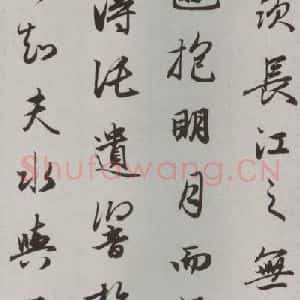 羨長江之無
遊抱明月而
得託遺響於
知夫水與
Shufawang.CN